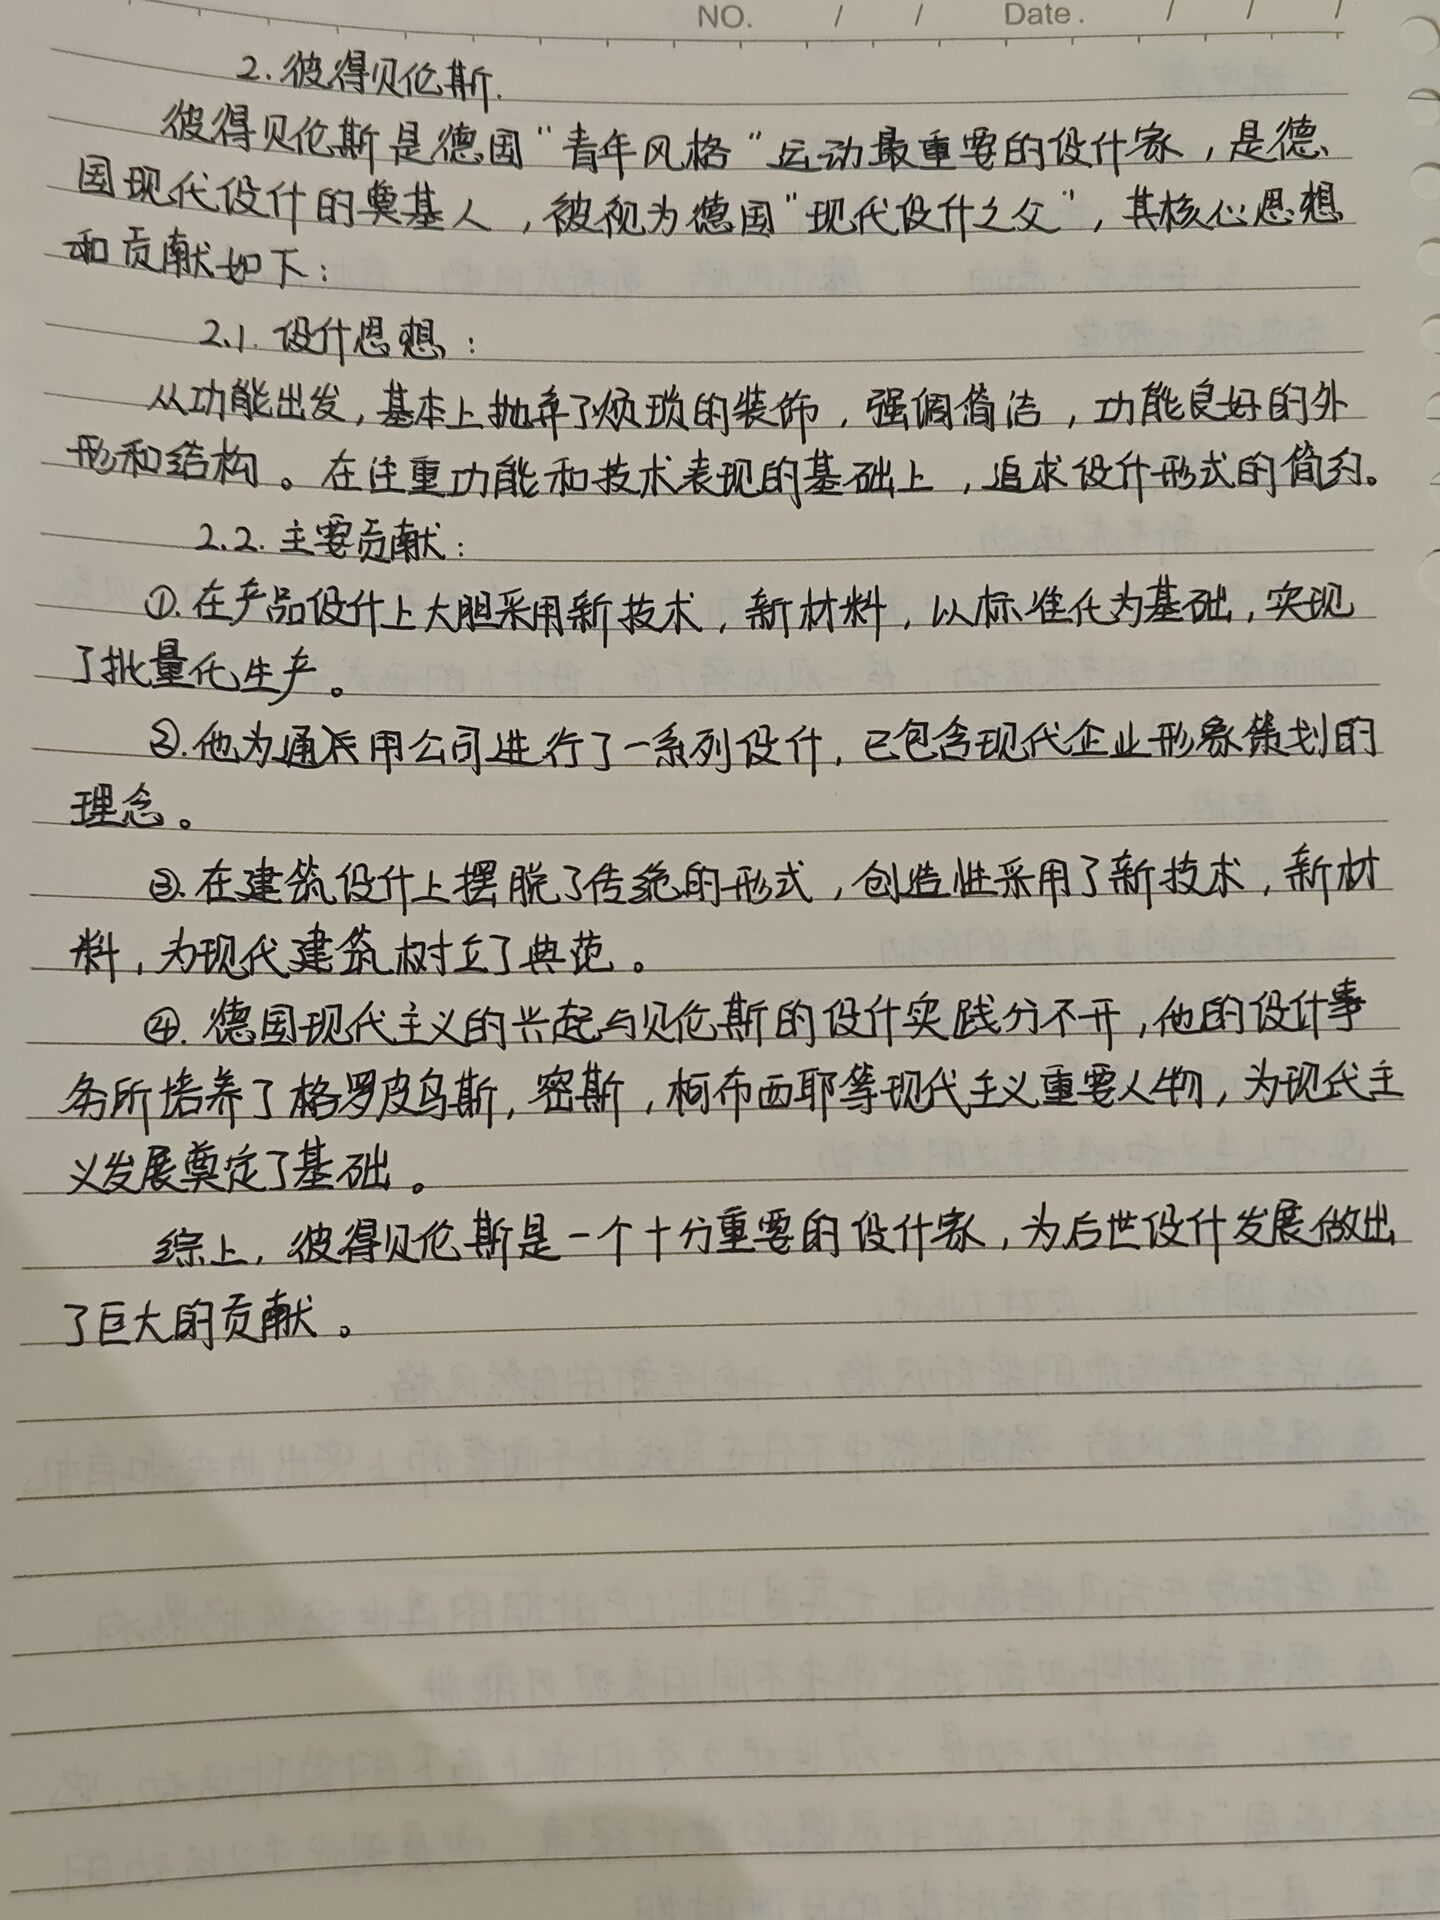 NO. / / Date. / / /
2.彼得贝伦斯.
彼得贝伦斯是德国“青年风格”运动最重要的设计家，是德
国现代设计的奠基人，被视为德国“现代设计之父”，其核心思想
和贡献如下：
2.1.设计思想：
从功能出发，基本上抛弃了烦琐的装饰，强调简洁，功能良好的外
形和结构。在注重功能和技术表现的基础上，追求设计形式的简约。
2.2.主要贡献：
①.在产品设计上大胆采用新技术，新材料，以标准化为基础，实现
了批量化生产。
②.他为通用公司进行了一系列设计，已包含现代企业形象策划的
理念。
③.在建筑设计上摆脱了传统的形式，创造性采用了新技术，新材
料，为现代建筑树立了典范。
④.德国现代主义的兴起与贝伦斯的设计实践分不开，他的设计事
务所培养了格罗皮乌斯，密斯，柯布西耶等现代主义重要人物，为现代主
义发展奠定了基础。
综上，彼得贝伦斯是一个十分重要的设计家，为后世设计发展做出
了巨大的贡献。